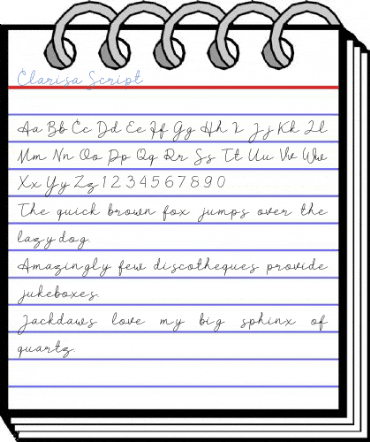 Clarisa Script
Aa Bb Cc Dd Ee Ff Gg Hh I Jj Kk Ll
Mm Nn Oo Pp Qq Rr Ss Tt Uu Vv Ww
Xx Yy Zz 1 2 3 4 5 6 7 8 9 0
The quick brown fox jumps over the
lazy dog.
Amazingly few discotheques provide
jukeboxes.
Jackdaws love my big sphinx of
quartz.